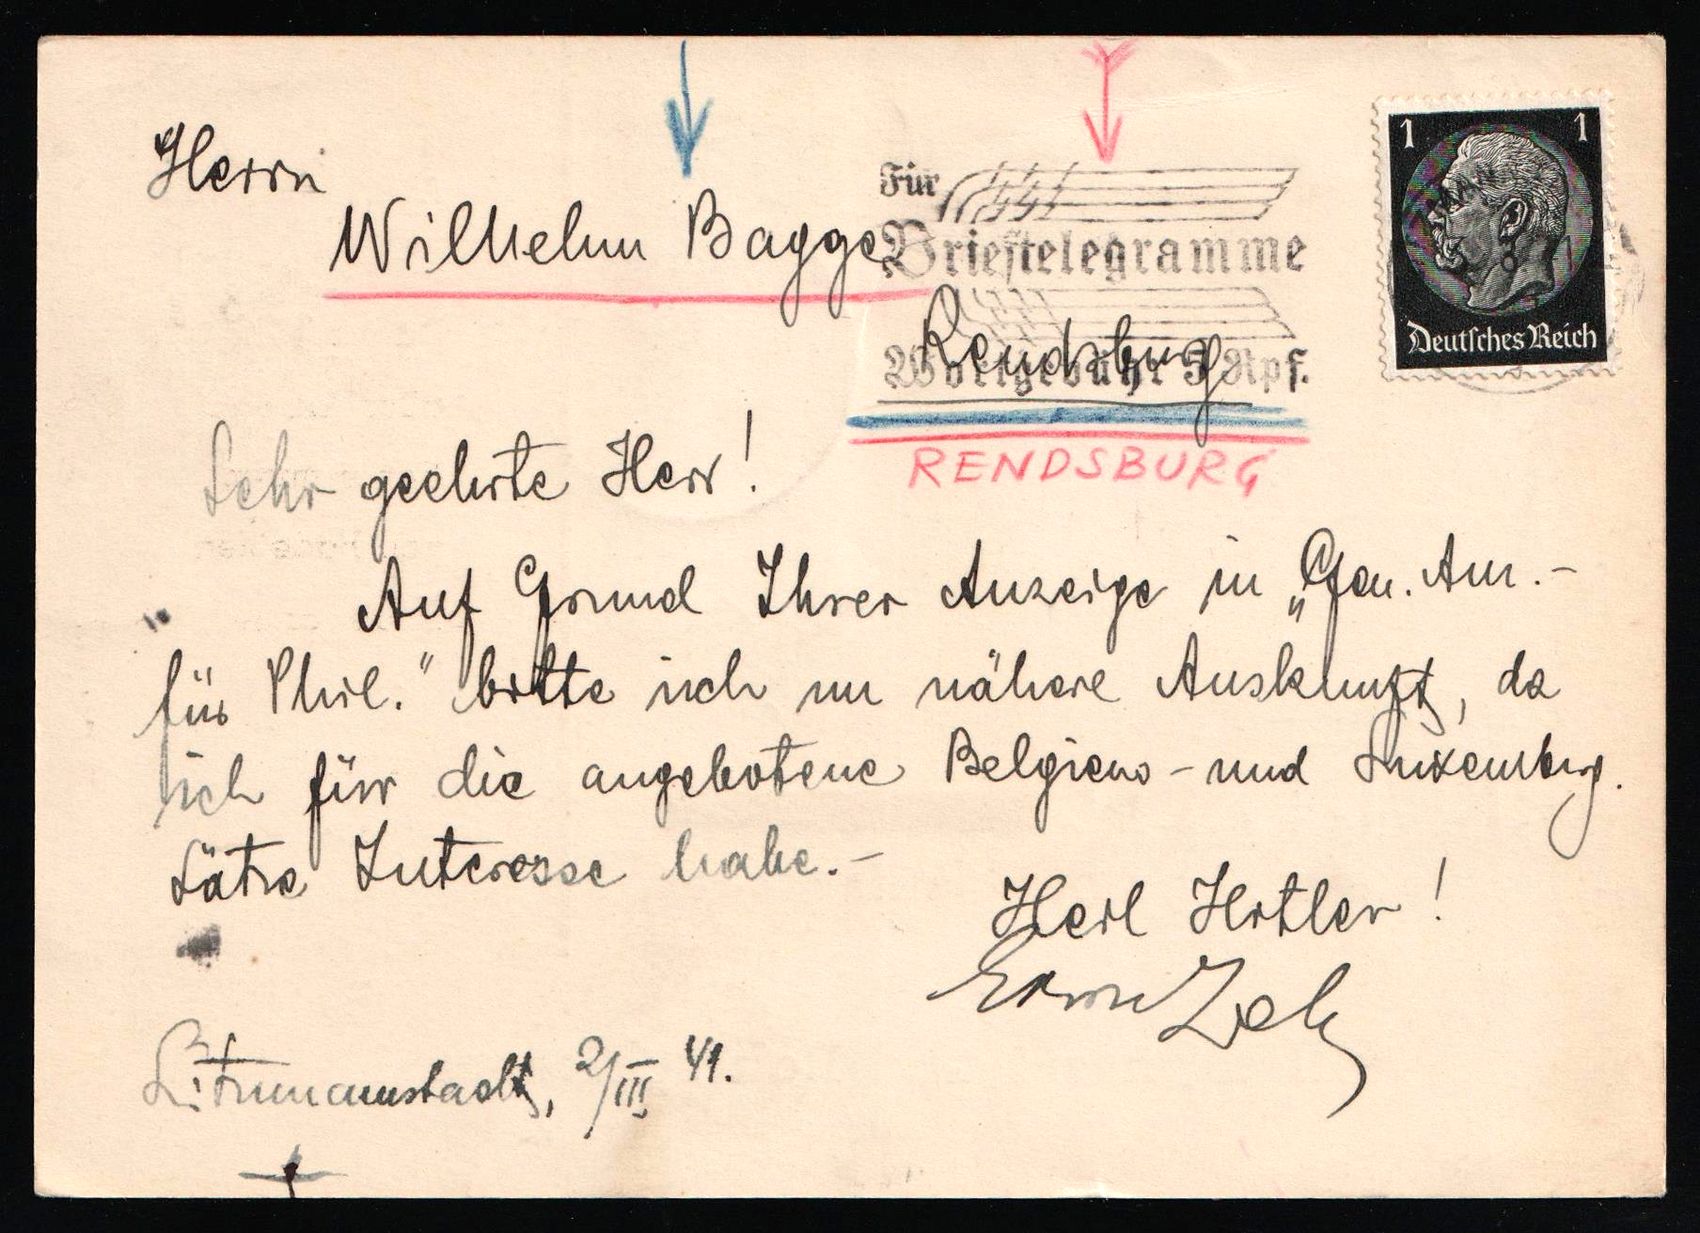 Herrn
Wilhelm Bagge
Für
Brieftelegramme
Wortgebühr 5 Rpf.
1 1
Deutsches Reich
Rendsburg
RENDSBURG
Sehr geehrte Herr!
Auf Grund Ihrer Anzeige in „Gen. Anz.-
für Phil." bitte ich um nähere Auskunft, da
ich für die angebotene Belgiens - und Luxemburg.
Sätze Interesse habe.-
Heil Hitler!
Litzmannstadt, 2/III 41.